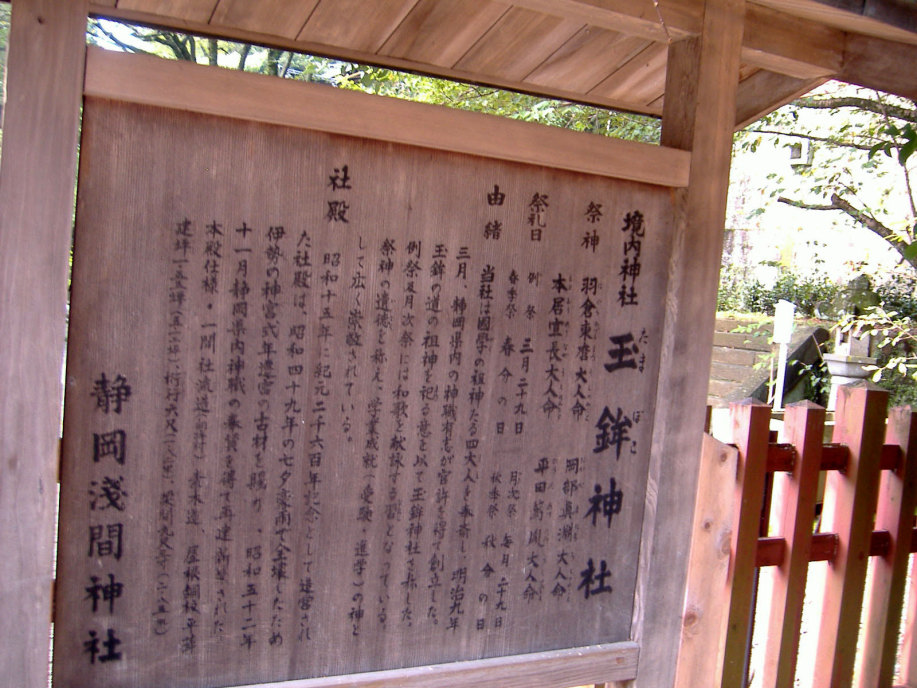 境内神社 玉鉾神社
たま ぼこ
祭神 羽倉東麿大人命 岡部真淵大人命
本居宣長大人命 平田篤胤大人命
祭礼日 例祭 三月二十九日 月次祭 毎月二十九日
春季祭 春分の日 秋季祭 秋分の日
由緒 当社は國學の祖神たる四大人を奉斎し、明治九年
三月、静岡県内の神職有志が官許を得て創立した。
玉鉾の道の祖神を祀る意を以て玉鉾神社と称した。
例祭及月次祭には和歌を献詠する習となっている。
祭神の遺徳を称え、学業成就(受験・進学)の神と
して広く崇敬されている。
社殿 昭和十五年に紀元二千六百年記念として造営され
た社殿は、昭和四十九年の七夕豪雨で全壊したため
伊勢の神宮式年遷宮の古材を賜わり、昭和五十二年
十一月静岡県内神職の奉賛を得て再建新された。
本殿仕様・一間社流造 素木造、屋根銅板平葺
建坪一・五坪
静岡浅間神社